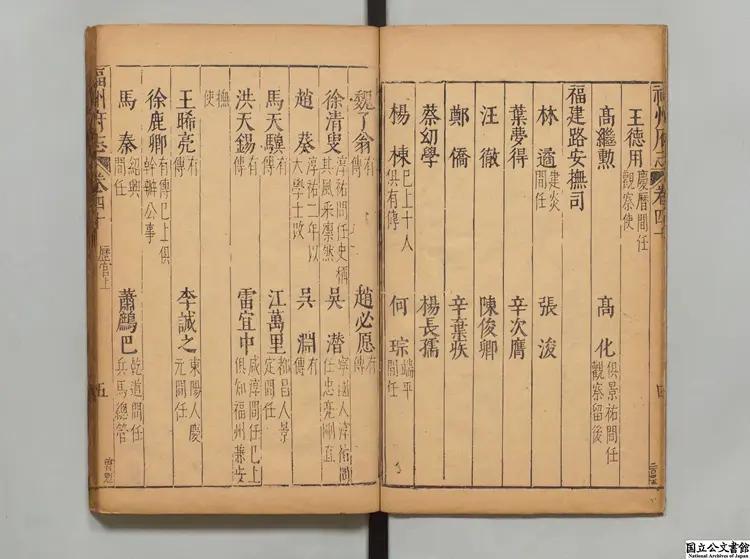 王德用 慶曆間任觀察使
高繼勲 高化 俱景祐間任觀察留後
福建路安撫司
林遹 建炎間任 張浚
葉夢得 辛次膺
汪徹 陳俊卿
鄭僑 辛棄疾
蔡幼學 楊長孺
楊棟 巳上十人俱有傳 何琮 端平間任
魏了翁 有傳 趙必愿 有傳
徐清叟 淳祐間任史稱其風采凛然 吳潛 寧國人淳祐間任忠亮剛直
趙葵 淳祐二年以大學士改 吳淵 有傳
馬天驥 有傳 江萬里 都昌人景定間任
洪天錫 有傳 雷宜中 咸淳間任巳上俱知福州兼安
撫使
王晞亮 有傳 李誠之 東陽人慶元間任
徐鹿卿 有傳巳上俱幹辦公事
馬秦 紹興間任 蕭鷓巴 乾道間任兵馬總管
福州府志 卷四十 歷官上 五
国立公文書館
National Archives of Japan